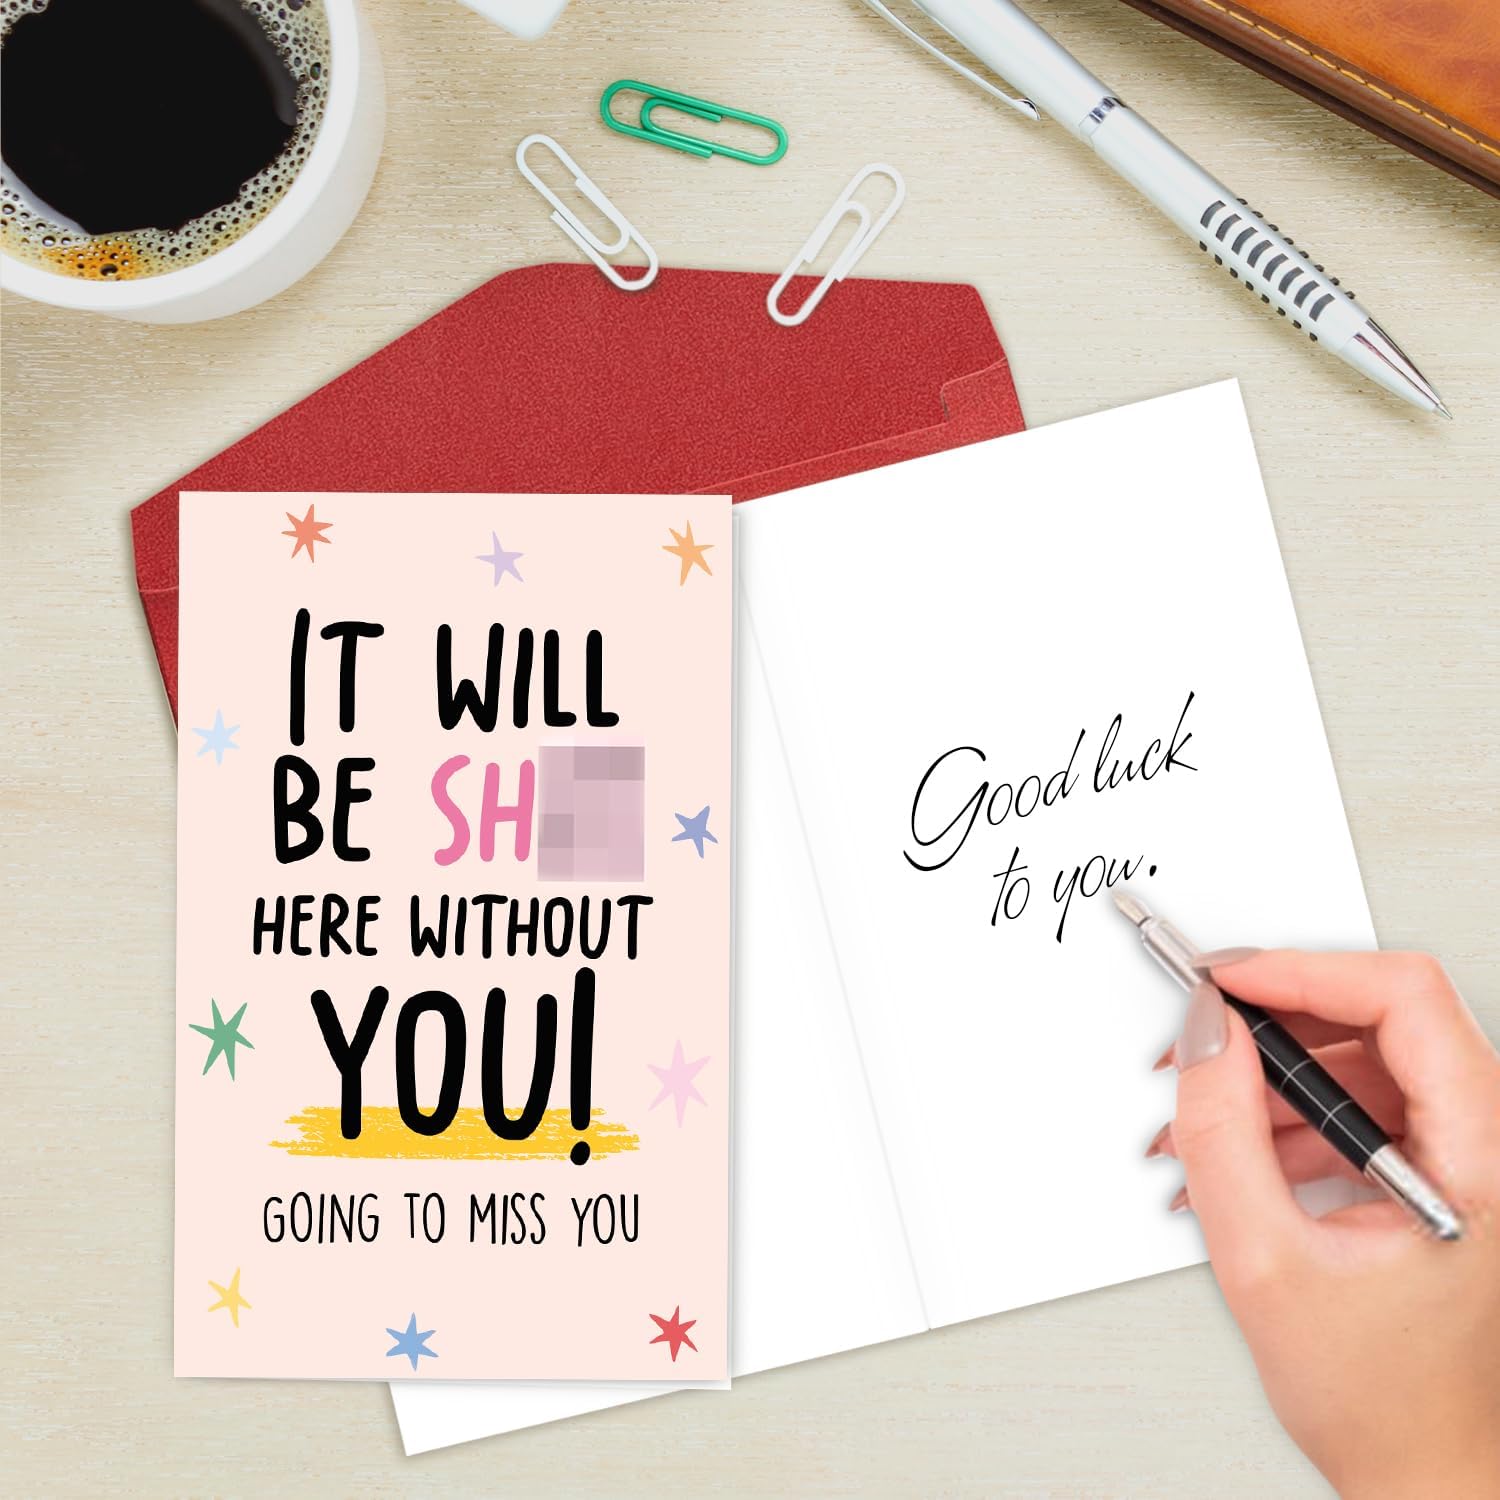 IT WILL
BE SH
HERE WITHOUT
YOU!
GOING TO MISS YOU
Good luck
to you.